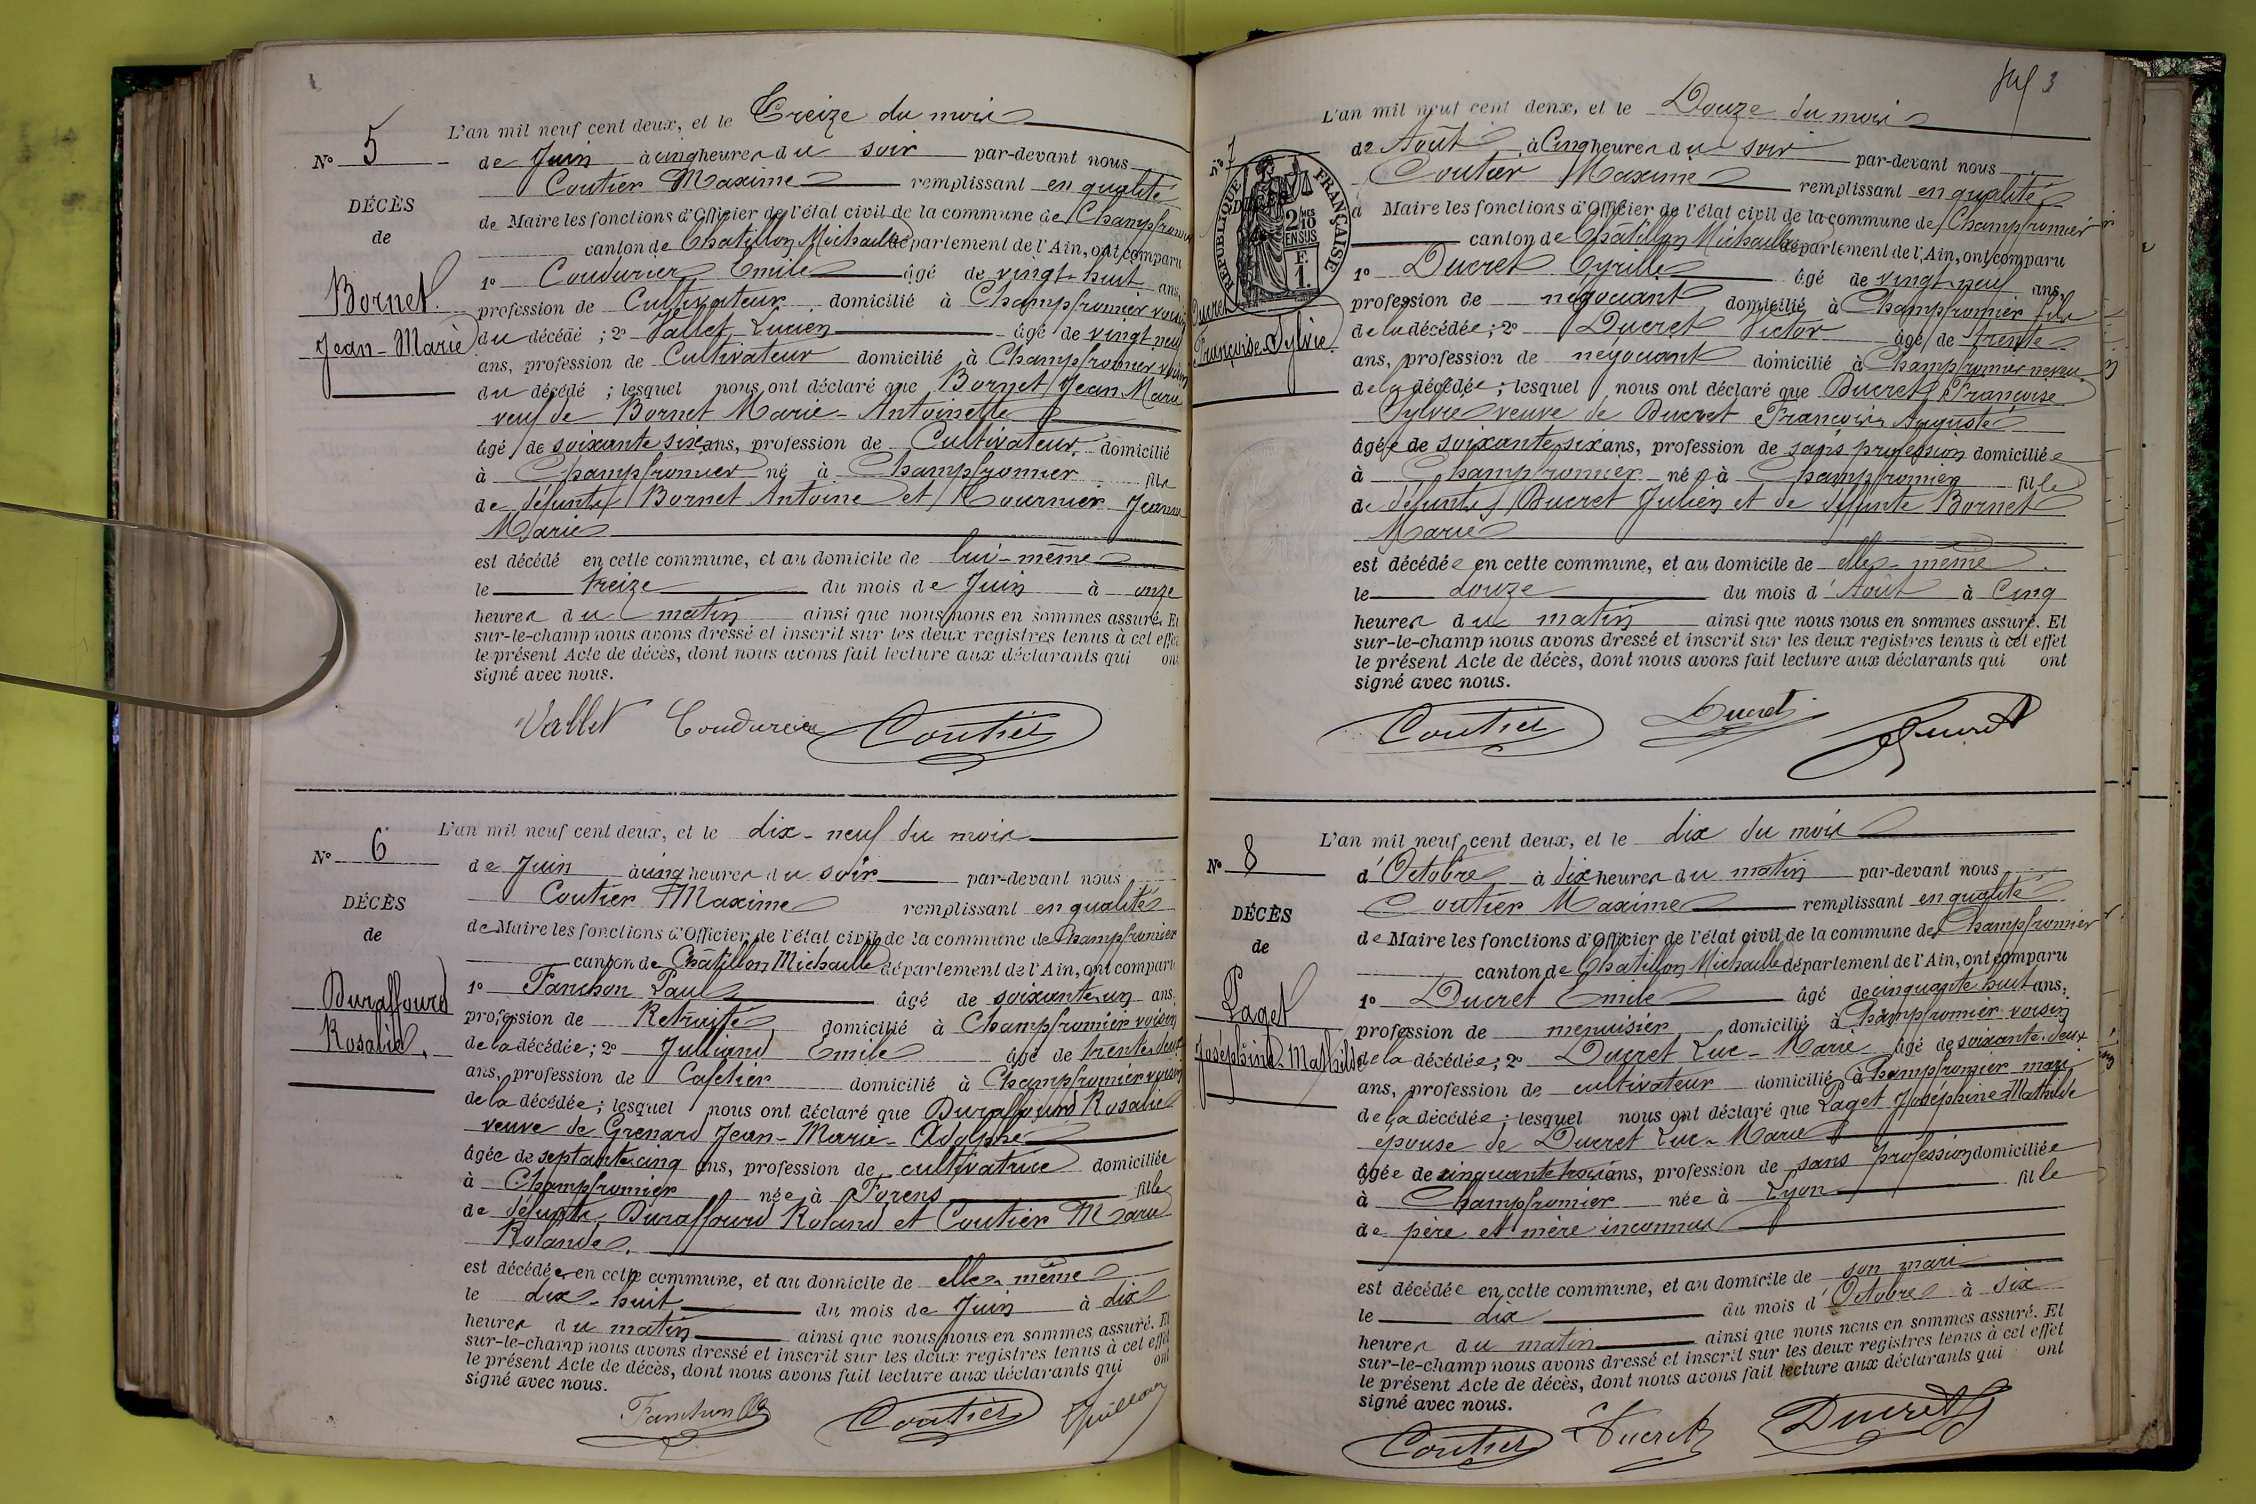 L'an mil neuf cent deux, et le Treize du mois
N° 5
de Juin à cinq heures du soir par-devant nous
Coutier Maxime remplissant en qualité
DÉCÈS
de Maire les fonctions d'Officier de l'état civil de la commune de Champfromier
de
canton de Chatillon Michaille département de l'Ain, ont comparu
1° Coudurier Emile âgé de vingt-huit ans,
Bornet
profession de Cultivateur domicilié à Champfromier voisin
Jean-Marie
du décédé ; 2° Vallet Lucien âgé de vingt neuf
ans, profession de Cultivateur domicilié à Champfromier voisin
du décédé ; lesquel nous ont déclaré que Bornet Jean Marie
veuf de Bornet Marie-Antoinette
âgé de soixante six ans, profession de Cultivateur domicilié
à Champfromier né à Champfromier fils
de défunts Bornet Antoine et Tournier Jeanne
Marie
est décédé en cette commune, et au domicile de lui-même
le treize du mois de Juin à onze
heures du matin ainsi que nous nous en sommes assuré. Et
sur-le-champ nous avons dressé et inscrit sur les deux registres tenus à cet effet
le présent Acte de décès, dont nous avons fait lecture aux déclarants qui ont
signé avec nous.
Vallet Coudurier Coutier
L'an mil neuf cent deux, et le dix-neuf du mois
N° 6
de Juin à cinq heures du soir par-devant nous
Coutier Maxime remplissant en qualité
DÉCÈS
de Maire les fonctions d'Officier de l'état civil de la commune de Champfromier
de
canton de Chatillon Michaille département de l'Ain, ont comparu
1° Fanchon Paul âgé de soixante un ans,
Duraffourd
profession de Retraité domicilié à Champfromier voisin
Rosalie.
de la décédée ; 2° Julliand Emile âgé de trente deux
ans, profession de Cafetier domicilié à Champfromier voisin
de la décédée ; lesquel nous ont déclaré que Duraffourd Rosalie
veuve de Grenard Jean-Marie-Adolphe
âgée de septante cinq ans, profession de cultivatrice domiciliée
à Champfromier née à Forens fille
de défunts Duraffourd Roland et Coutier Marie
Rolande.
est décédée en cette commune, et au domicile de elle-même
le dix-huit du mois de Juin à dix
heures du matin ainsi que nous nous en sommes assuré. Et
sur-le-champ nous avons dressé et inscrit sur les deux registres tenus à cet effet
le présent Acte de décès, dont nous avons fait lecture aux déclarants qui ont
signé avec nous.
Fanchon Coutier Julliand
3
L'an mil neuf cent deux, et le Douze du mois
N° 7
de Août à Cinq heures du soir par-devant nous
Coutier Maxime remplissant en qualité
DÉCÈS
RÉPUBLIQUE FRANÇAISE
2 10MES EN SUS
F. 1.
d Maire les fonctions d'Officier de l'état civil de la commune de Champfromier
canton de Châtillon Michaille département de l'Ain, ont comparu
1° Ducret Cyrille âgé de vingt-neuf ans,
Ducret
profession de négociant domicilié à Champfromier fils
Françoise-Sylvie
de la décédée ; 2° Ducret Victor âgé de trente
ans, profession de négociant domicilié à Champfromier neveu
de la décédée ; lesquel nous ont déclaré que Ducret Françoise
Sylvie veuve de Ducret François Auguste
âgée de soixante six ans, profession de sans profession domiciliée
à Champfromier née à Champfromier fille
de défunts Ducret Julien et de défunte Bornet
Marie
est décédée en cette commune, et au domicile de elle-même
le douze du mois d'Août à Cinq
heures du matin ainsi que nous nous en sommes assuré. Et
sur-le-champ nous avons dressé et inscrit sur les deux registres tenus à cet effet
le présent Acte de décès, dont nous avons fait lecture aux déclarants qui ont
signé avec nous.
Coutier Ducret Ducret
L'an mil neuf cent deux, et le dix du mois
N° 8
d'Octobre à dix heures du matin par-devant nous
Coutier Maxime remplissant en qualité
DÉCÈS
de Maire les fonctions d'Officier de l'état civil de la commune de Champfromier
de
canton de Chatillon Michaille département de l'Ain, ont comparu
1° Ducret Emile âgé de cinquante huit ans,
Laget
profession de menuisier domicilié à Champfromier voisin
Joséphine-Mathilde
de la décédée ; 2° Ducret Luc-Marie âgé de soixante-deux
ans, profession de cultivateur domicilié à Champfromier mari
de la décédée ; lesquel nous ont déclaré que Laget Joséphine-Mathilde
épouse de Ducret Luc-Marie
âgée de cinquante trois ans, profession de sans profession domiciliée
à Champfromier née à Lyon fille
de père et mère inconnus
est décédée en cette commune, et au domicile de son mari
le dix du mois d'Octobre à six
heures du matin ainsi que nous nous en sommes assuré. Et
sur-le-champ nous avons dressé et inscrit sur les deux registres tenus à cet effet
le présent Acte de décès, dont nous avons fait lecture aux déclarants qui ont
signé avec nous.
Coutier Ducret Ducret